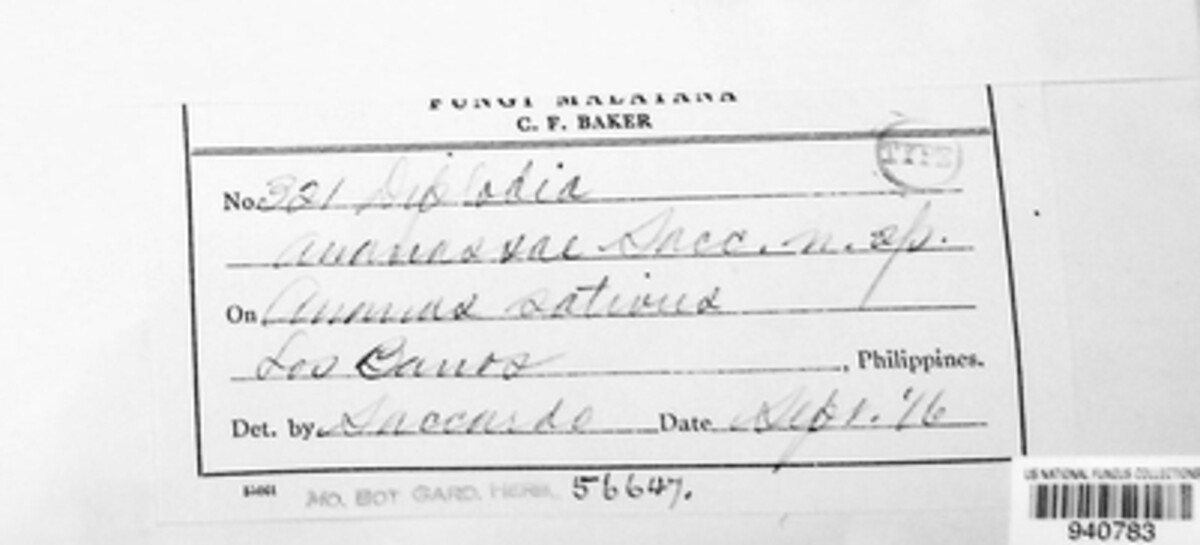 FUNGI MALAYANA
C. F. BAKER
TYPE
No. 321 Diplodia
ananassae Sacc. n. sp.
On Ananas sativus
Los Banos, Philippines.
Det. by Saccardo Date Sept. '16
MO. BOT GARD. HERB. 56647.
US NATIONAL FUNGUS COLLECTIONS
940783